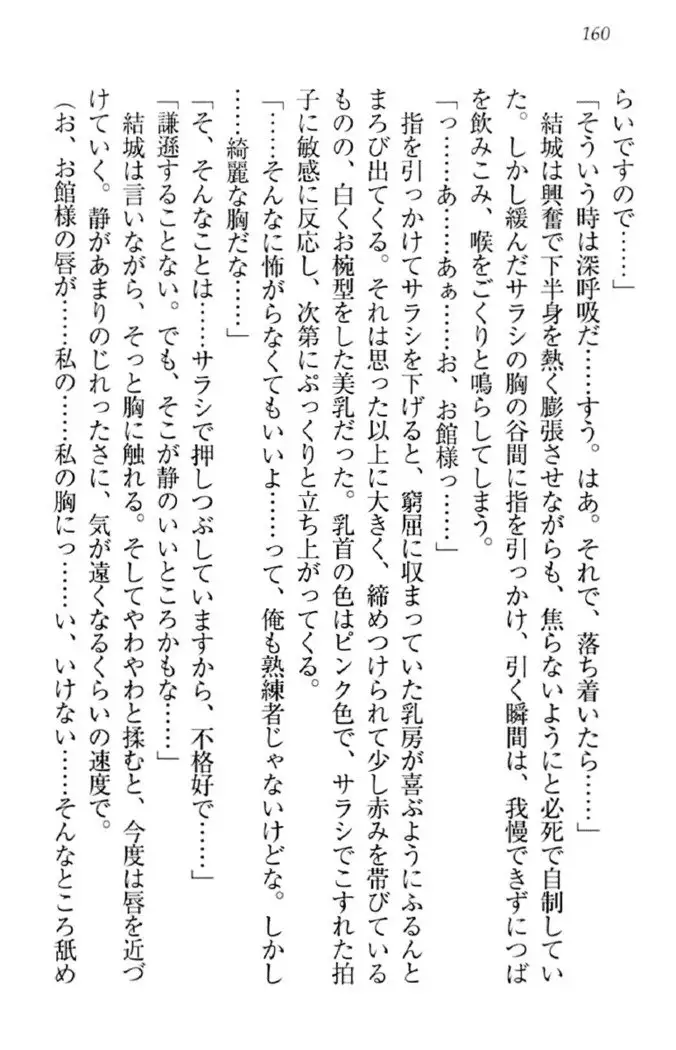 160
らいですので……」
「そういう時は深呼吸だ……すう。はあ。それで、落ち着いたら……」
結城は興奮で下半身を熱く膨張させながらも、焦らないようにと必死で自制してい
た。しかし緩んだサラシの胸の谷間に指を引っかけ、引く瞬間は、我慢できずにつば
を飲みこみ、喉をごくりと鳴らしてしまう。
「っ……あ……あぁ……お、お館様っ……」
指を引っかけてサラシを下げると、窮屈に収まっていた乳房が喜ぶようにふるんと
まろび出てくる。それは思った以上に大きく、締めつけられて少し赤みを帯びている
ものの、白くお椀型をした美乳だった。乳首の色はピンク色で、サラシでこすれた拍
子に敏感に反応し、次第にぷっくりと立ち上がってくる。
「……そんなに怖がらなくてもいいよ……って、俺も熟練者じゃないけどな。しかし
……綺麗な胸だな……」
「そ、そんなことは……サラシで押しつぶしていますから、不格好で……」
「謙遜することない。でも、そこが静のいいところかもな……」
結城は言いながら、そっと胸に触れる。そしてやわやわと揉むと、今度は唇を近づ
けていく。静があまりのじれったさに、気が遠くなるくらいの速度で。
(お、お館様の唇が……私の……私の胸にっ……い、いけない……そんなところ舐め